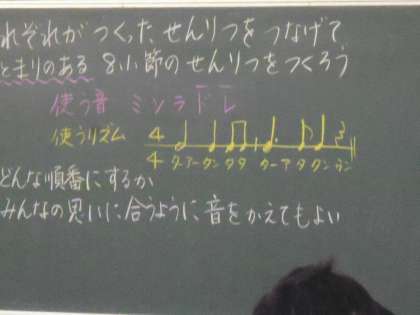 れぞれが つくった せんりつを つなげて
とまりのある 8小節のせんりつをつくろう
使う音 ミソラドレ
使うリズム 4 4 ターアー タン タタ ターアタタン ウン
どんな順番にするか
みんなの思いに合うように音をかえてもよい